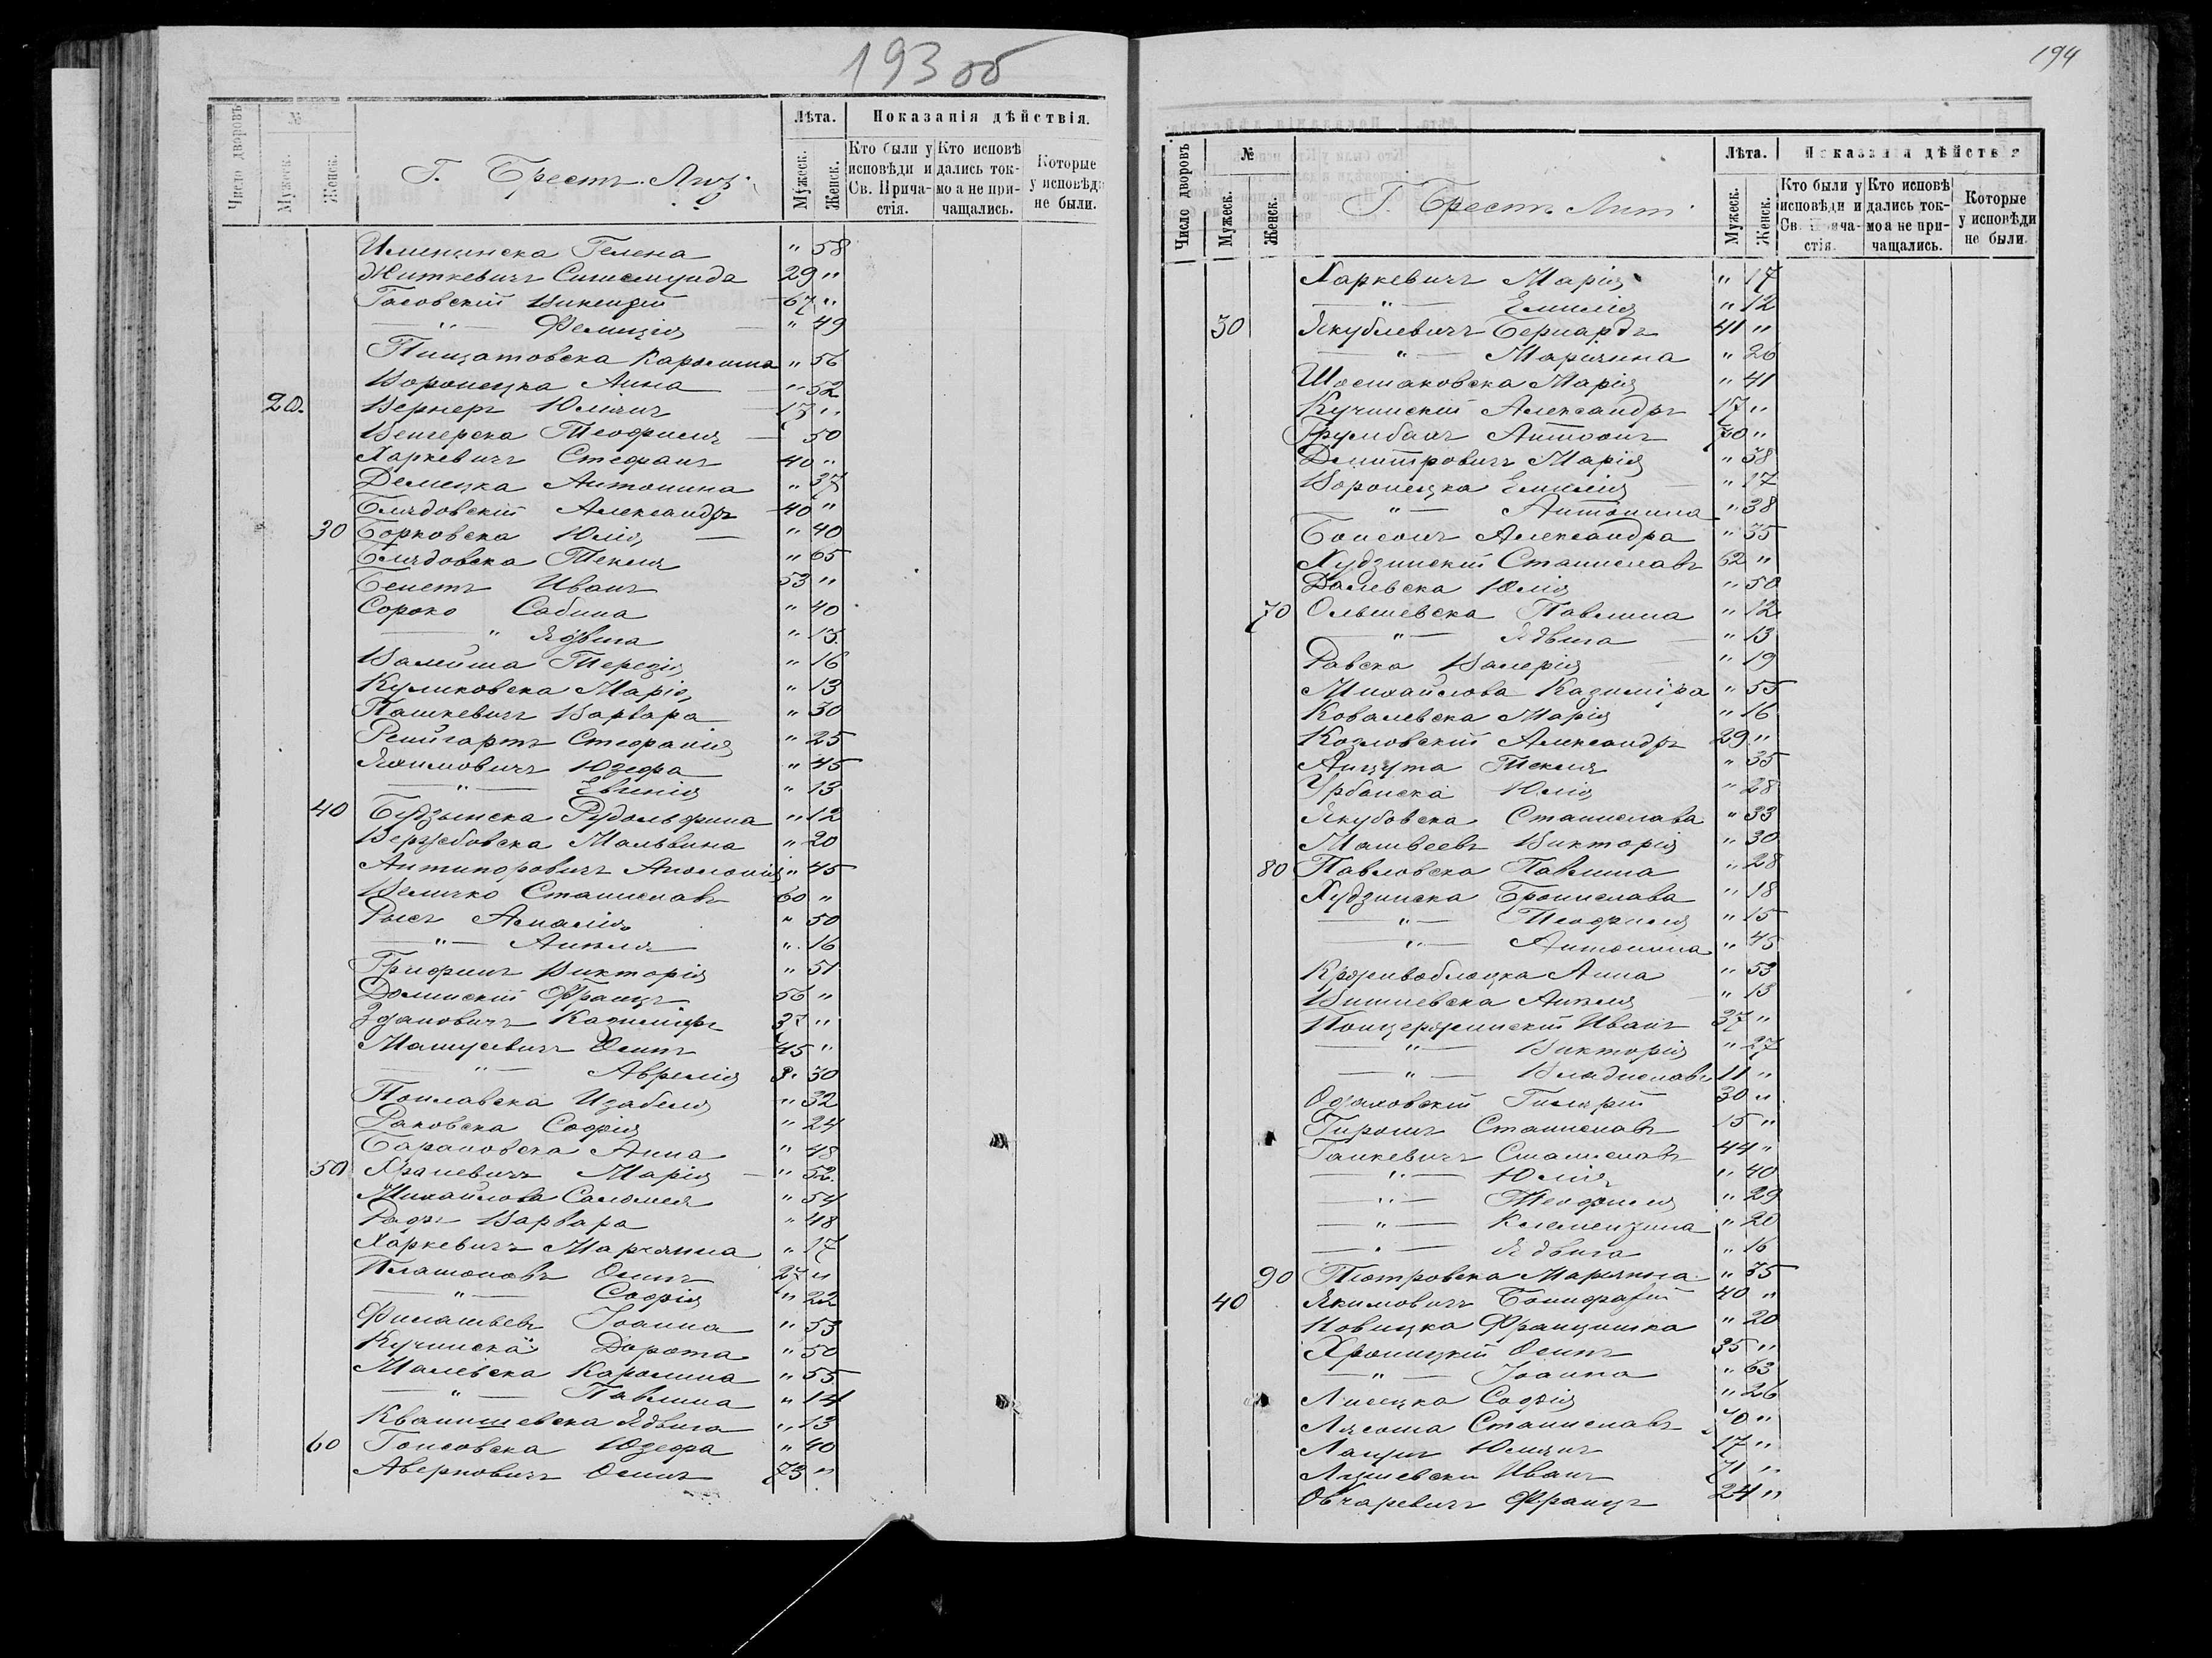 193 об
Число дворовъ
№
Мужеск.
Женск.
Г. Брестъ. Лит.
Лѣта.
Мужеск.
Женск.
Показанія дѣйствія.
Кто были у исповѣди и Св. Причастія.
Кто исповѣдались токмо а не причащались.
Которые у исповѣди не были.
Гелена " 58
Житкевичъ Сигисмундъ 29 "
Госовскій Викентій 67 "
—"— Фелиція " 49
Каролина " 56
Воронецка Анна " 52
20. Вернеръ Юліянъ 13 "
Венгерска Теофиля 50
Харкевичъ Стефанъ 40 "
Демецка Антонина " 37
Блядовскій Александръ 40 "
30 Борковска Юлія " 40
Блядовска Текля " 65
Бенетъ Иванъ 53 "
Сороко Сабина " 40
—"— Ядвига " 13
Терезія " 16
Куликовска Марія " 13
Пашкевичъ Варвара " 30
Рейнгартъ Стефанія " 25
Якимовичъ Юзефа " 45
—"— Евгенія " 13
40 Будзынска Рудольфина " 12
Вержбовска Мальвина " 20
Антипоровичъ Аполонія " 45
Величко Станиславъ 60 "
Рысъ Амалія " 50
—"— Анеля " 16
Грифинъ Викторія " 51
Долинскій Францъ 56 "
Здановичъ Казиміръ 37 "
Мацусевичъ Осипъ 45 "
—"— Аврелія 30
Поплавска Изабеля " 32
Раковска Софія " 24
Барановска Анна " 48
50 Храневичъ Марія " 52
Михайлова Саломея " 54
Варвара " 48
Харкевичъ Марьянна " 17
Платоновъ Осипъ 27 "
—"— Софія " 22
Филатьевъ Іоанна " 53
Кучинска Дорота " 50
Малевска Каролина " 55
—"— Павлина " 14
Квапишевска Ядвига " 13
60 Гонсовска Юзефа " 40
Аверковичъ Осипъ 73 "
194
Число дворовъ
№
Мужеск.
Женск.
Г. Брестъ Лит.
Лѣта.
Мужеск.
Женск.
Показанія дѣйствія
Кто были у исповѣди и Св. Причастія.
Кто исповѣдались токмо а не причащались.
Которые у исповѣди не были.
Харкевичъ Марія " 17
—"— Емилія " 12
30 Якублевичъ Бернардъ 41 "
—"— Марьянна " 26
Шостаковска Марія " 41
Кучинскій Александръ 17 "
Грумбахъ Антонъ 70 "
Дмитровичъ Марія " 38
Воронецка Емилія " 17
—"— Антонина " 38
Александра " 35
Худзинскій Станиславъ 62 "
Далевска Юлія " 50
70 Ольшевска Павлина " 12
—"— Ядвига " 13
Равска Валерія " 19
Михайлова Казиміра " 55
Ковалевска Марія " 16
Козловскій Александръ 29 "
Анцута Текля " 35
Урбанска Юлія " 28
Якубовска Станислава " 33
Матвеевъ Викторія " 30
80 Павловска Павлина " 28
Худзинска Бронислава " 18
—"— Теофиля " 15
—"— Антонина " 45
Крживоблоцка Анна " 53
Вишневска Анеля " 13
Понцержинскій Иванъ 37 "
—"— Викторія " 27
—"— Владиславъ 11 "
Одаховскій Гилярій 30 "
Гиронъ Станиславъ 15 "
Ганкевичъ Станиславъ 44 "
—"— Юлія " 40
—"— Теофиля " 29
—"— Клементина " 20
—"— Ядвига " 16
90 Піотровска Марьянна " 35
40 Якимовичъ Бонифатій 40 "
Новицка Францишка " 20
Хроницкій Осипъ 35 "
—"— Іоанна " 63
Лисецка Софія " 26
Лясота Станиславъ 70 "
Юліянъ 17 "
Иванъ 71 "
Овчаревичъ Францъ 24 "